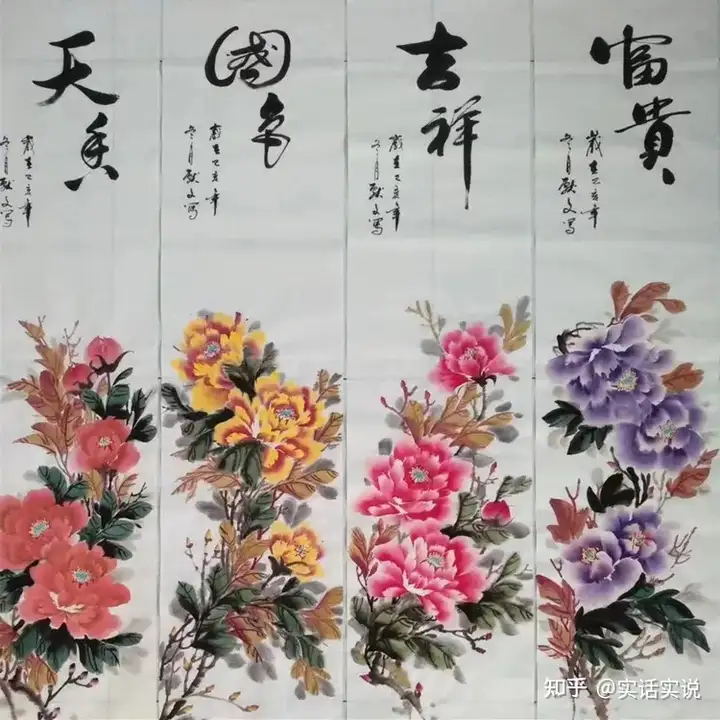 富貴
歲在己亥年
冬月文寫
吉祥
歲在己亥年
冬月文寫
國色
歲在己亥年
冬月文寫
天香
歲在己亥年
冬月文寫
知乎 @实话实说